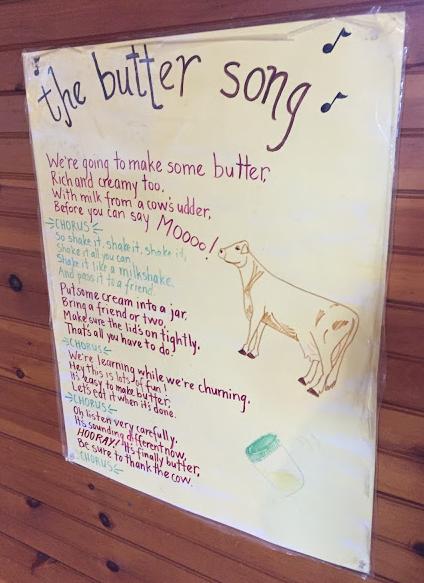 the butter song
We're going to make some butter,
Rich and creamy too.
With milk from a cow's udder,
Before you can say MOOOO!
CHORUS
So shake it, shake it, shake it,
Shake it all you can,
Shake it like a milkshake,
And pass it to a friend.
Put some cream into a jar,
Bring a friend or two,
Make sure the lid's on tightly.
That's all you have to do.
CHORUS
We're learning while we're churning.
Hey this is lots of fun!
It's easy to make butter,
Let's eat it when it's done.
CHORUS
Oh listen very carefully.
It's sounding different now,
HOORAY! It's finally butter,
Be sure to thank the cow.
CHORUS